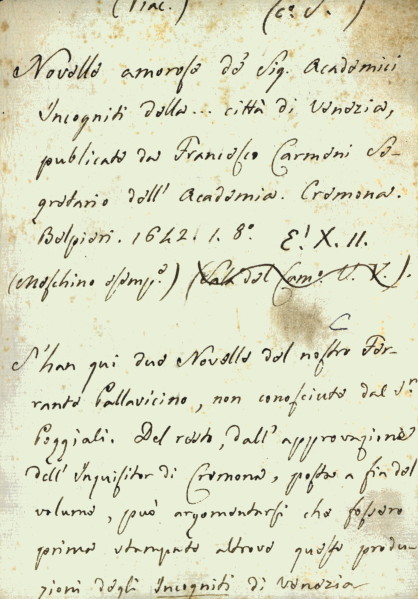 (Piac.) (c.º S. )
Novelle amorose de' Sig. Academici
Incogniti della... città di Venezia,
publicate da Francesco Carmeni Se-
gretario dell' Academia. Cremona.
Belpieri. 1642. 1. 8º. E! X. 11.
(Meschino esemp.º) (Sala del Cam.º U. V.).
S'han qui due Novelle del nostro Fer-
rante Pallavicino, non conosciute dal Sr
Poggiali. Del resto, dall' approvazione
dell' Inquisitor di Cremona, posta a fin del
volume, può argomentarsi che fossero
prima stampate altrove queste produ-
zioni degli Incogniti di Venezia